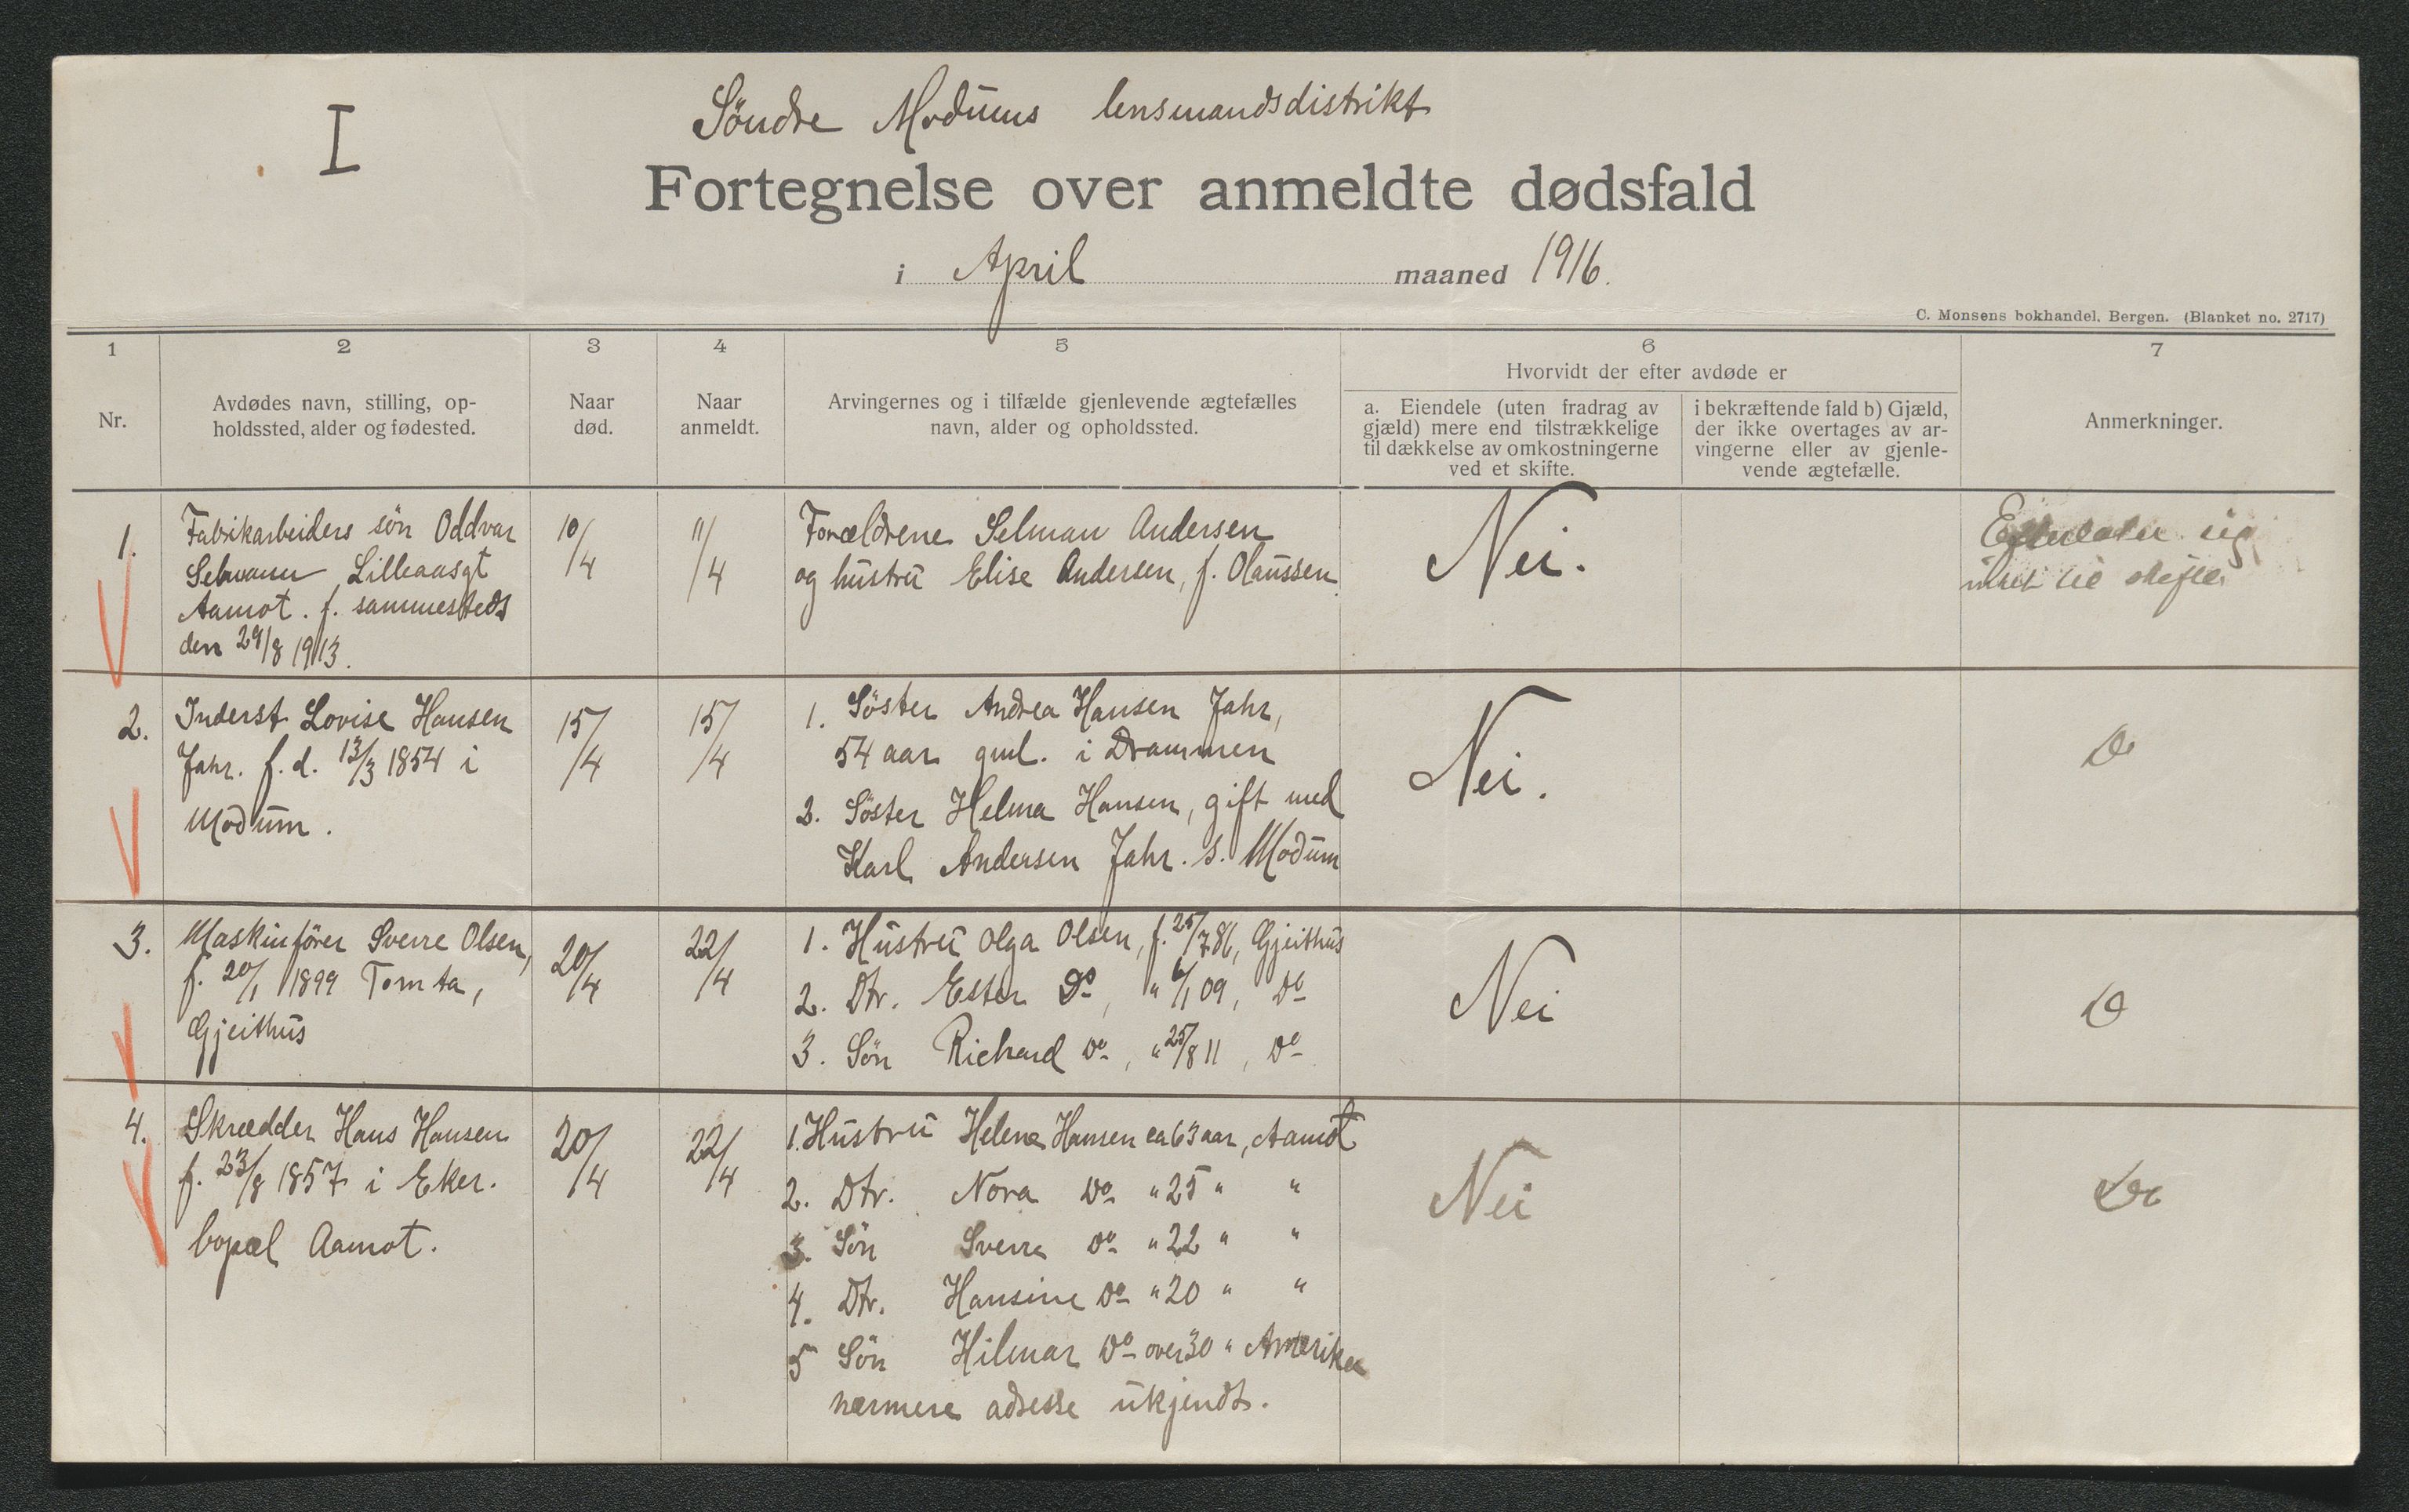 I
Söndre Modums lensmandsdistrikt
Fortegnelse over anmeldte dødsfald
i April maaned 1916.
C. Monsens bokhandel, Bergen. (Blanket no. 2717)
1
Nr.
2
Avdødes navn, stilling, op-
holdssted, alder og fødested.
3
Naar
død.
4
Naar
anmeldt.
5
Arvingernes og i tilfælde gjenlevende ægtefælles
navn, alder og opholdssted.
6
Hvorvidt der efter avdøde er
a. Eiendele (uten fradrag av
gjæld) mere end tilstrækkelige
til dækkelse av omkostningerne
ved et skifte.
i bekræftende fald b) Gjæld,
der ikke overtages av ar-
vingerne eller av gjenle-
vende ægtefælle.
7
Anmerkninger.
1.
Fabrikarbeiders sön Oddvar
Selmann Lilleaasgt
Aamot. f. sammesteds
den 29/8 1913.
10/4
11/4
Forældrene Selman Andersen
og hustru Elise Andersen, f. Olaussen.
Nei.
Efterlater sig
intet til skifte
2.
Inderst Lovise Hansen
Jahr. f. d. 13/3 1854 i
Modum.
15/4
15/4
1. Söster Andrea Hansen Jahr,
54 aar gml. i Drammen
2. Söster Helma Hansen, gift med
Karl Andersen Jahr. s. Modum
Nei.
Do
3.
Maskinförer Sverre Olsen,
f. 20/1 1899 Tomta,
Gjeithus
20/4
22/4
1. Hustru Olga Olsen, f. 25/7 86, Gjeithus
2. Dtr. Ester Do, " 6/1 09, Do
3. Sön Richard Do, " 25/8 11, Do
Nei
Do
4.
Skrædder Hans Hansen
f. 23/8 1857 i Eker.
bopæl Aamot.
20/4
22/4
1. Hustru Helene Hansen ca 63 aar, Aamot
2. Dtr. Nora Do " 25 " "
3. Sön Sverre Do " 22 " "
4. Dtr. Hansine Do " 20 " "
5 Sön Hilmar Do over 30 " Amerika
nærmere adresse ukjendt.
Nei
Do